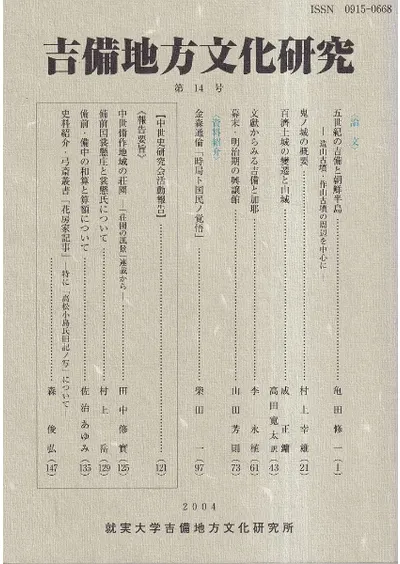 ISSN 0915-0668
吉備地方文化研究
第14号
〈論文〉
五世紀の吉備と朝鮮半島
―造山古墳・作山古墳の周辺を中心に― 亀田修一 (1)
鬼ノ城の概要 村上幸雄 (21)
百済土城の変遷と山城 成正鏞
高田寛太訳 (43)
文献からみる吉備と加耶 李永植 (61)
幕末・明治期の興譲館 山田芳則 (73)
〈資料紹介〉
金森通倫「時局ト国民ノ覚悟」 柴田一 (97)
【中世史研究会活動報告】 (121)
《報告要旨》
中世備作地域の荘園―「荘園の風景」連載から― 田中修實 (125)
備前国裳懸庄と裳懸氏について 村上岳 (129)
備前・備中の和算と算額について 佐治あゆみ (135)
史料紹介・弓斎叢書「花房家記事」―特に「高松小島氏旧記ノ写」について 森俊弘 (147)
2004
就実大学吉備地方文化研究所